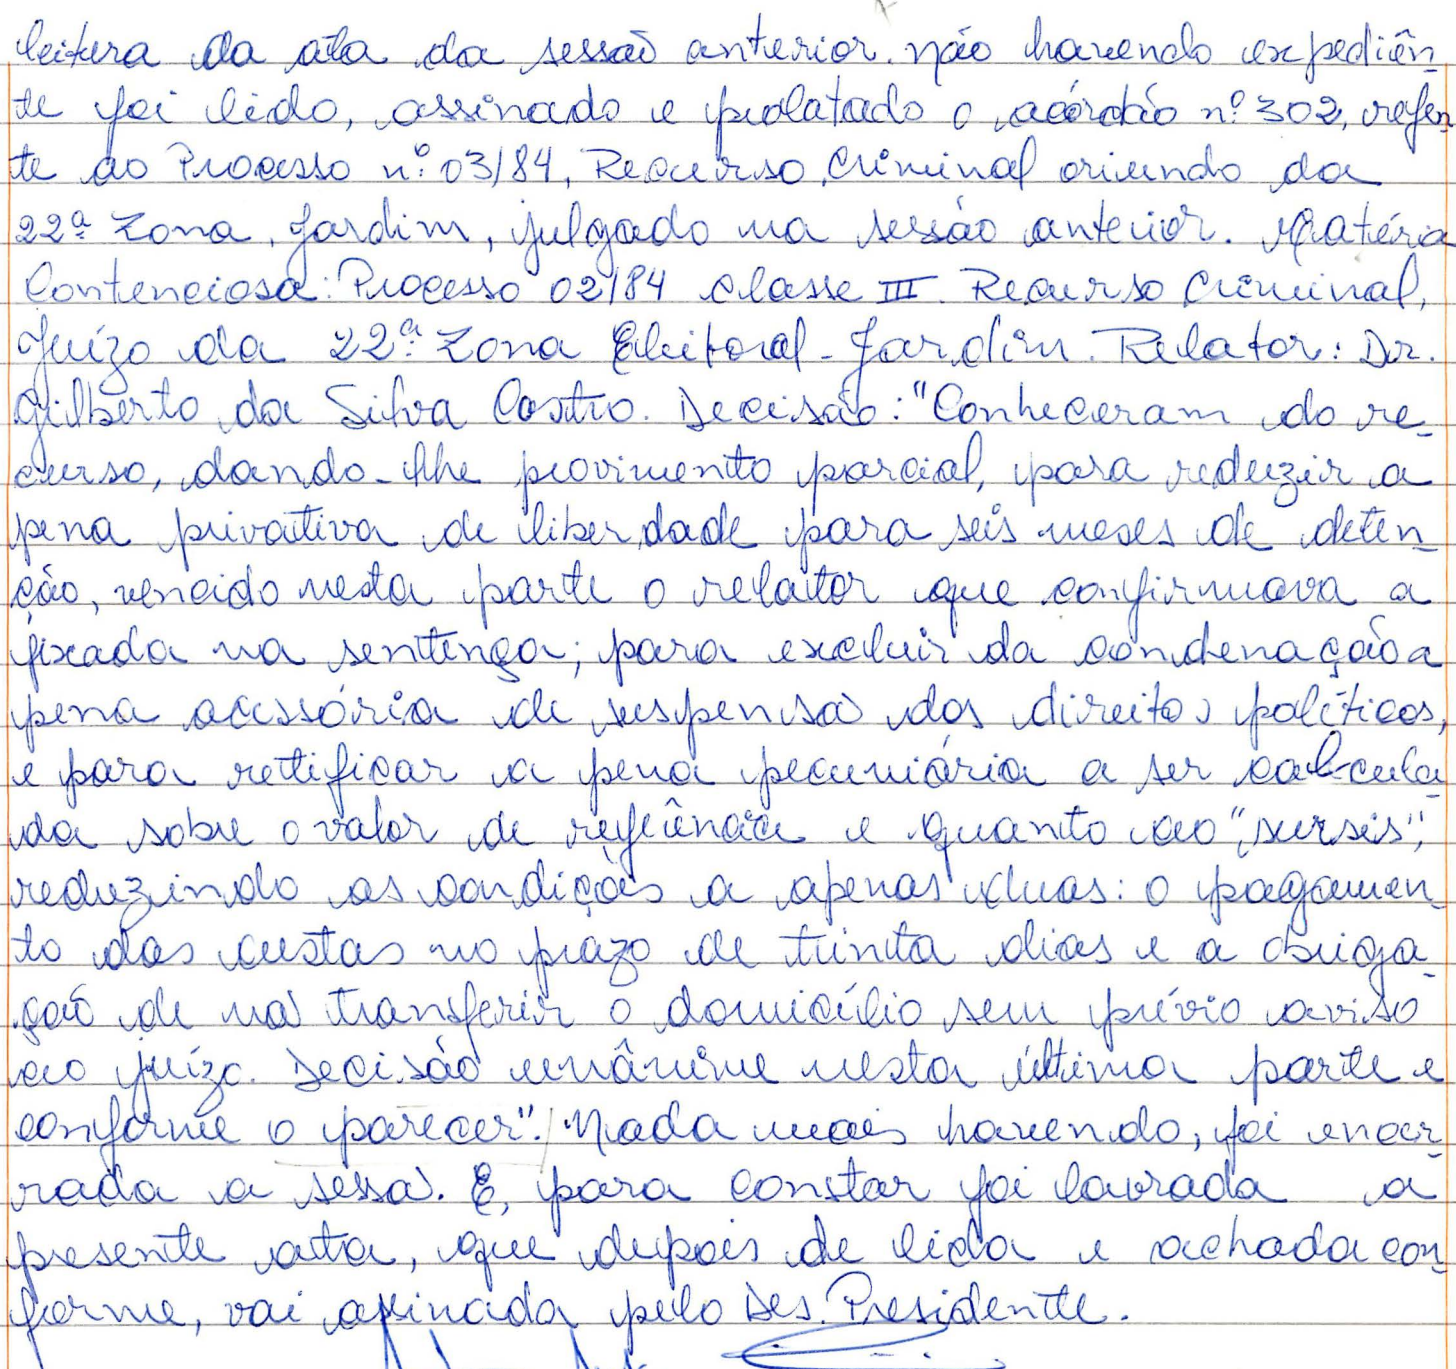 leitura da ata da sessão anterior. não havendo expediên-
te foi lido, assinado e prolatado o acórdão nº 302, referen
te ao Processo nº 03/84, Recurso Criminal oriundo da
22ª Zona, Jardim, julgado na sessão anterior. Matéria
Contenciosa: Processo 02/84 classe III. Recurso Criminal,
Juízo da 22ª Zona Eleitoral - Jardim. Relator: Dr.
Gilberto da Silva Castro. Decisão: "Conheceram do re-
curso, dando-lhe provimento parcial, para reduzir a
pena privativa de liberdade para seis meses de deten-
ção, vencido nesta parte o relator que confirmava a
fixada na sentença; para excluir da condenação a
pena acessória de suspensão dos direitos políticos,
e para retificar a pena pecuniária a ser calcula-
da sobre o valor de referência e quanto ao "sursis",
reduzindo as condições a apenas duas: o pagamen-
to das custas no prazo de trinta dias e a obriga-
ção de não transferir o domicílio sem prévio aviso
ao juízo. Decisão unânime nesta última parte e
conforme o parecer". Nada mais havendo, foi encer-
rada a sessão. E, para constar foi lavrada a
presente ata, que depois de lida e achada con-
forme, vai assinada pelo Des. Presidente.